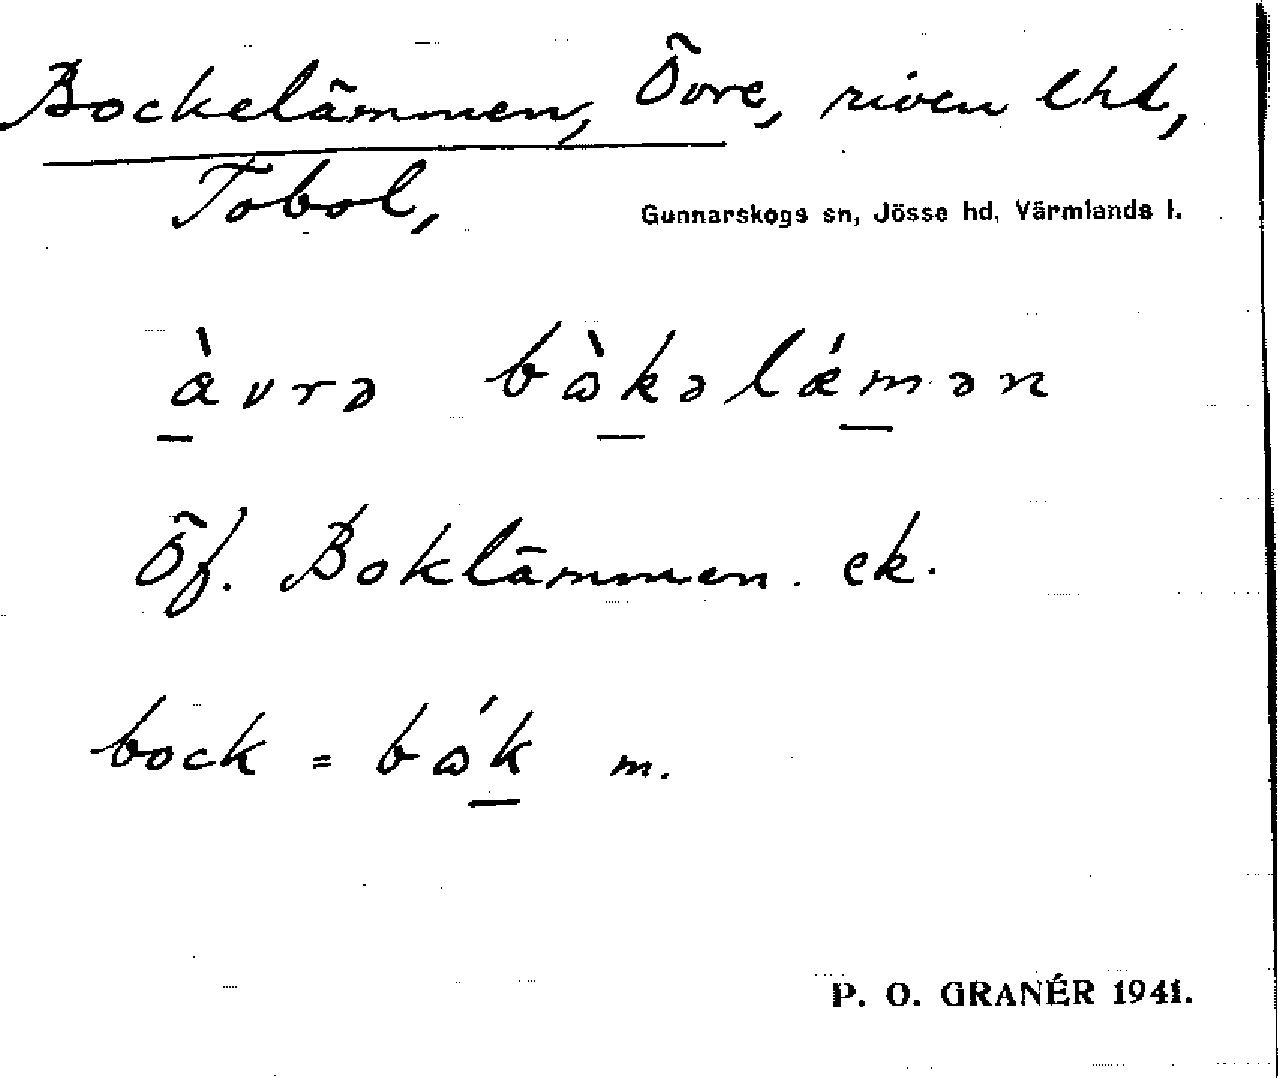 Bockelämmen, Övre, riven lht,
Tobol,
Gunnarskogs sn, Jösse hd, Värmlands l.
àvrə bòkəlǽmən
Öf. Boklämmen. ek.
bock = bók m.
P. O. GRANÉR 1941.